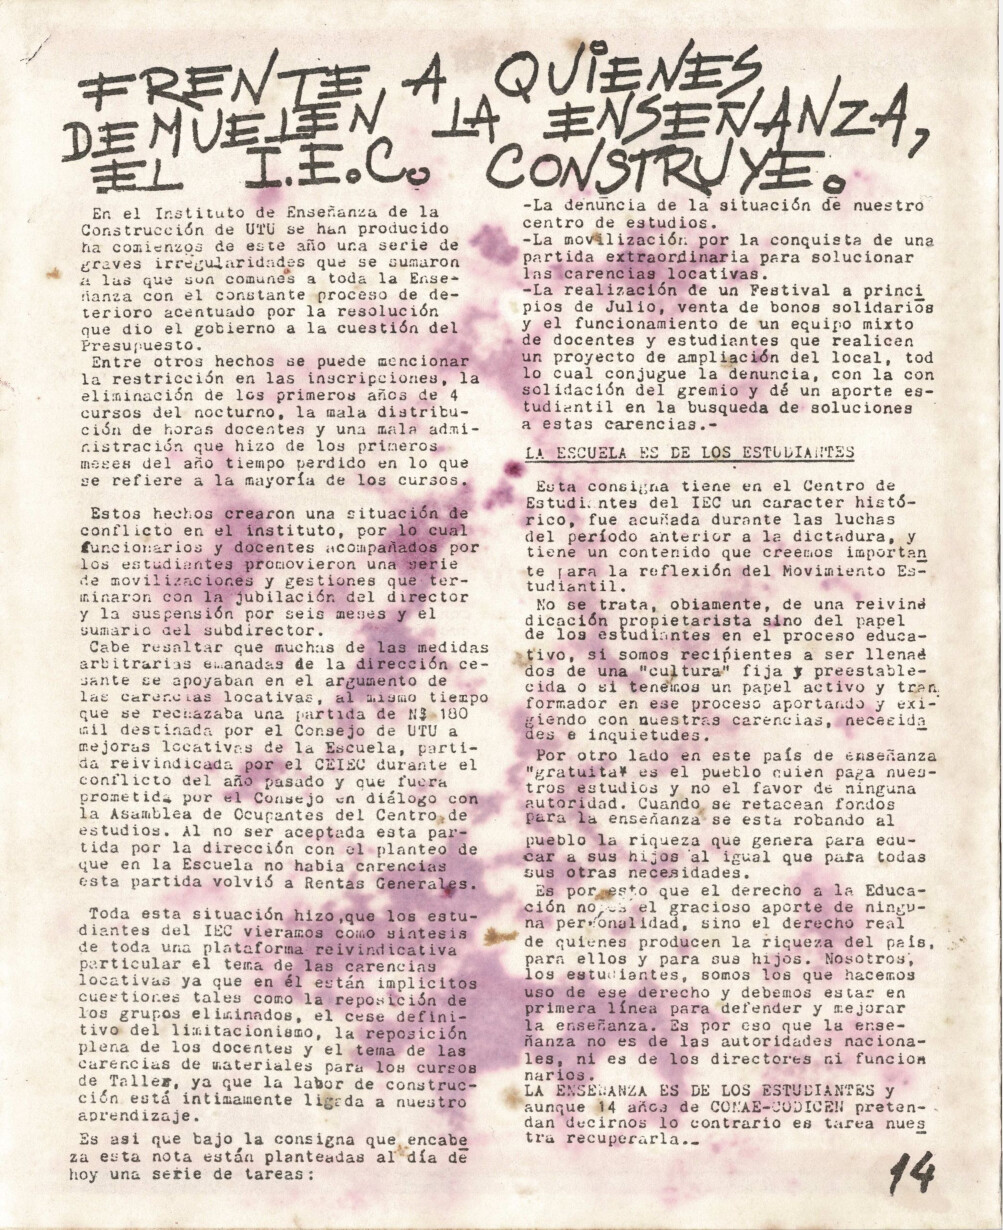 FRENTE A QUIENES
DEMUELEN LA ENSEÑANZA,
EL I.E.C. CONSTRUYE.
En el Instituto de Enseñanza de la
Construcción de UTU se han producido
ha comienzos de este año una serie de
graves irregularidades que se sumaron
a las que son comunes a toda la Ense-
ñanza con el constante proceso de de-
terioro acentuado por la resolución
que dio el gobierno a la cuestión del
Presupuesto.
Entre otros hechos se puede mencionar
la restricción en las inscripciones, la
eliminación de los primeros años de 4
cursos del nocturno, la mala distribu-
ción de horas docentes y una mala admi-
nistración que hizo de los primeros
meses del año tiempo perdido en lo que
se refiere a la mayoría de los cursos.
Estos hechos crearon una situación de
conflicto en el instituto, por lo cual
funcionarios y docentes acompañados por
los estudiantes promovieron una serie
de movilizaciones y gestiones que ter-
minaron con la jubilación del director
y la suspensión por seis meses y el
sumario del subdirector.
Cabe resaltar que muchas de las medidas
arbitrarias emanadas de la dirección ce-
sante se apoyaban en el argumento de
las carencias locativas, al mismo tiempo
que se rechazaba una partida de N$ 180
mil destinada por el Consejo de UTU a
mejoras locativas de la Escuela, parti-
da reivindicada por el CEIEC durante el
conflicto del año pasado y que fuera
prometida por el Consejo en diálogo con
la Asamblea de Ocupantes del Centro de
estudios. Al no ser aceptada esta par-
tida por la dirección con el planteo de
que en la Escuela no habia carencias
esta partida volvió a Rentas Generales.
Toda esta situación hizo,que los estu-
diantes del IEC vieramos como sintesis
de toda una plataforma reivindicativa
particular el tema de las carencias
locativas ya que en él están implícitos
cuestiones tales como la reposición de
los grupos eliminados, el cese defini-
tivo del limitacionismo, la reposición
plena de los docentes y el tema de las
carencias de materiales para los cursos
de Taller, ya que la labor de construc-
ción está intimamente ligada a nuestro
aprendizaje.
Es asi que bajo la consigna que encabe
za esta nota están planteadas al día de
hoy una serie de tareas:
-La denuncia de la situación de nuestro
centro de estudios.
-La movilización por la conquista de una
partida extraordinaria para solucionar
las carencias locativas.
-La realización de un Festival a princi
pios de Julio, venta de bonos solidarios
y el funcionamiento de un equipo mixto
de docentes y estudiantes que realicen
un proyecto de ampliación del local, tod
lo cual conjugue la denuncia, con la con
solidación del gremio y dé un aporte es-
tudiantil en la busqueda de soluciones
a estas carencias.-
LA ESCUELA ES DE LOS ESTUDIANTES
Esta consigna tiene en el Centro de
Estudiantes del IEC un caracter histó-
rico, fue acuñada durante las luchas
del período anterior a la dictadura, y
tiene un contenido que creemos importan
te para la reflexión del Movimiento Es-
tudiantil.
No se trata, obiamente, de una reivind
dicación propietarista sino del papel
de los estudiantes en el proceso educa-
tivo, si somos recipientes a ser llenad
dos de una "cultura" fija y preestable-
cida o si tenemos un papel activo y tran
formador en ese proceso aportando y exi-
giendo con nuestras carencias, necesida
des e inquietudes.
Por otro lado en este país de enseñanza
"gratuita" es el pueblo quien paga nues-
tros estudios y no el favor de ninguna
autoridad. Cuando se retacean fondos
para la enseñanza se esta robando al
pueblo la riqueza que genera para edu-
car a sus hijos al igual que para todas
sus otras necesidades.
Es por esto que el derecho a la Educa-
ción no es el gracioso aporte de ningu-
na personalidad, sino el derecho real
de quienes producen la riqueza del país,
para ellos y para sus hijos. Nosotros,
los estudiantes, somos los que hacemos
uso de ese derecho y debemos estar en
primera línea para defender y mejorar
la enseñanza. Es por eso que la ense-
ñanza no es de las autoridades naciona-
les, ni es de los directores ni funcion
narios.
LA ENSEÑANZA ES DE LOS ESTUDIANTES y
aunque 14 años de CONAE-CODICEN preten-
dan decirnos lo contrario es tarea nues
tra recuperarla..
14